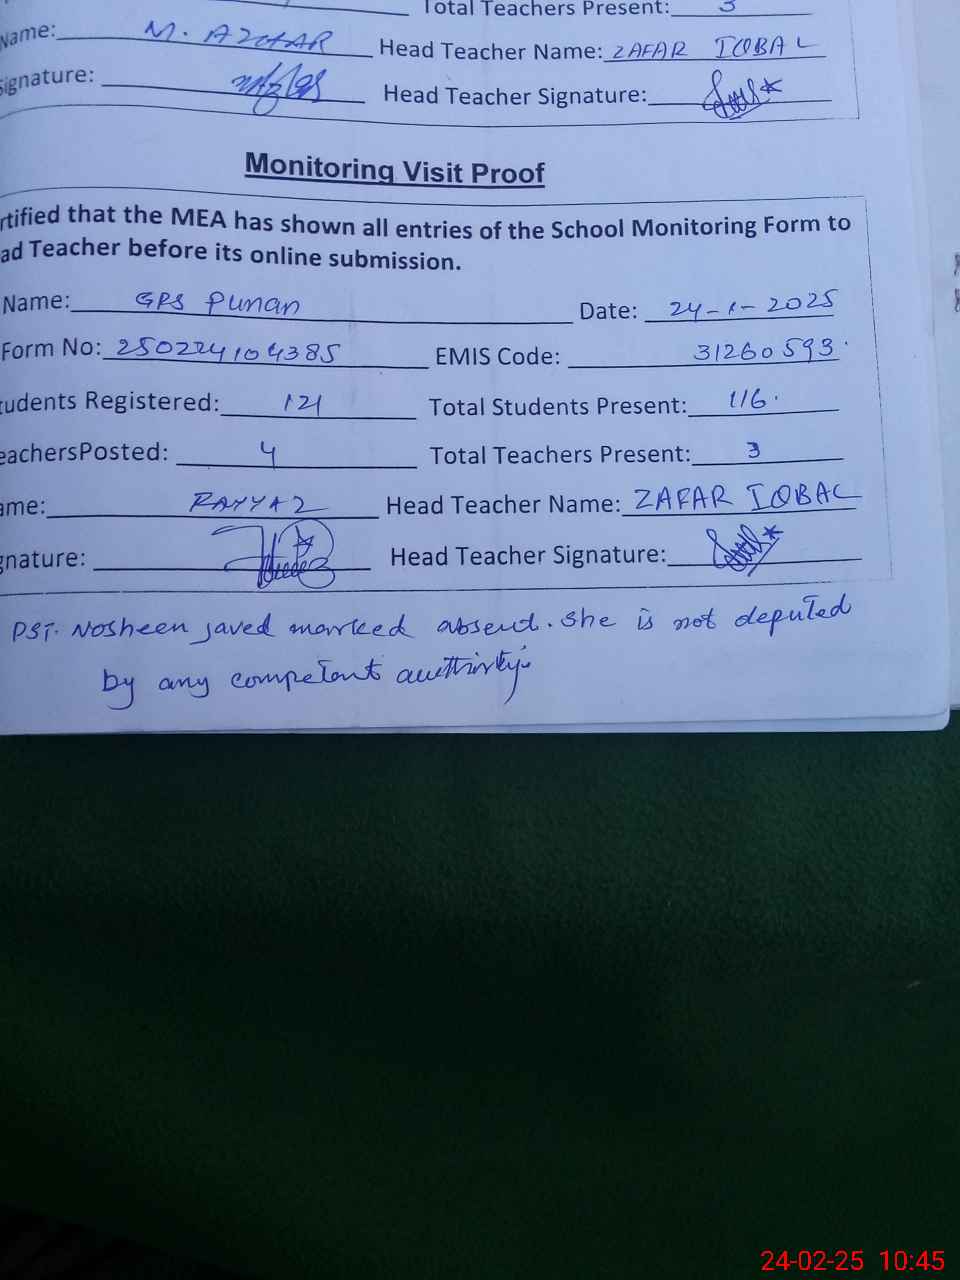 Total Teachers Present: 3
Name: M. AZHAR Head Teacher Name: ZAFAR IQBAL
Signature: Head Teacher Signature:
Monitoring Visit Proof
rtified that the MEA has shown all entries of the School Monitoring Form to
ad Teacher before its online submission.
Name: GPS Punan Date: 24-1-2025
Form No: 250224104385 EMIS Code: 31260593
udents Registered: 121 Total Students Present: 116.
eachersPosted: 4 Total Teachers Present: 3
ame: RAYYAZ Head Teacher Name: ZAFAR IQBAL
gnature: Head Teacher Signature:
PST. Nosheen javed marked absent. She is not deputed
by any competent authirty.
24-02-25 10:45